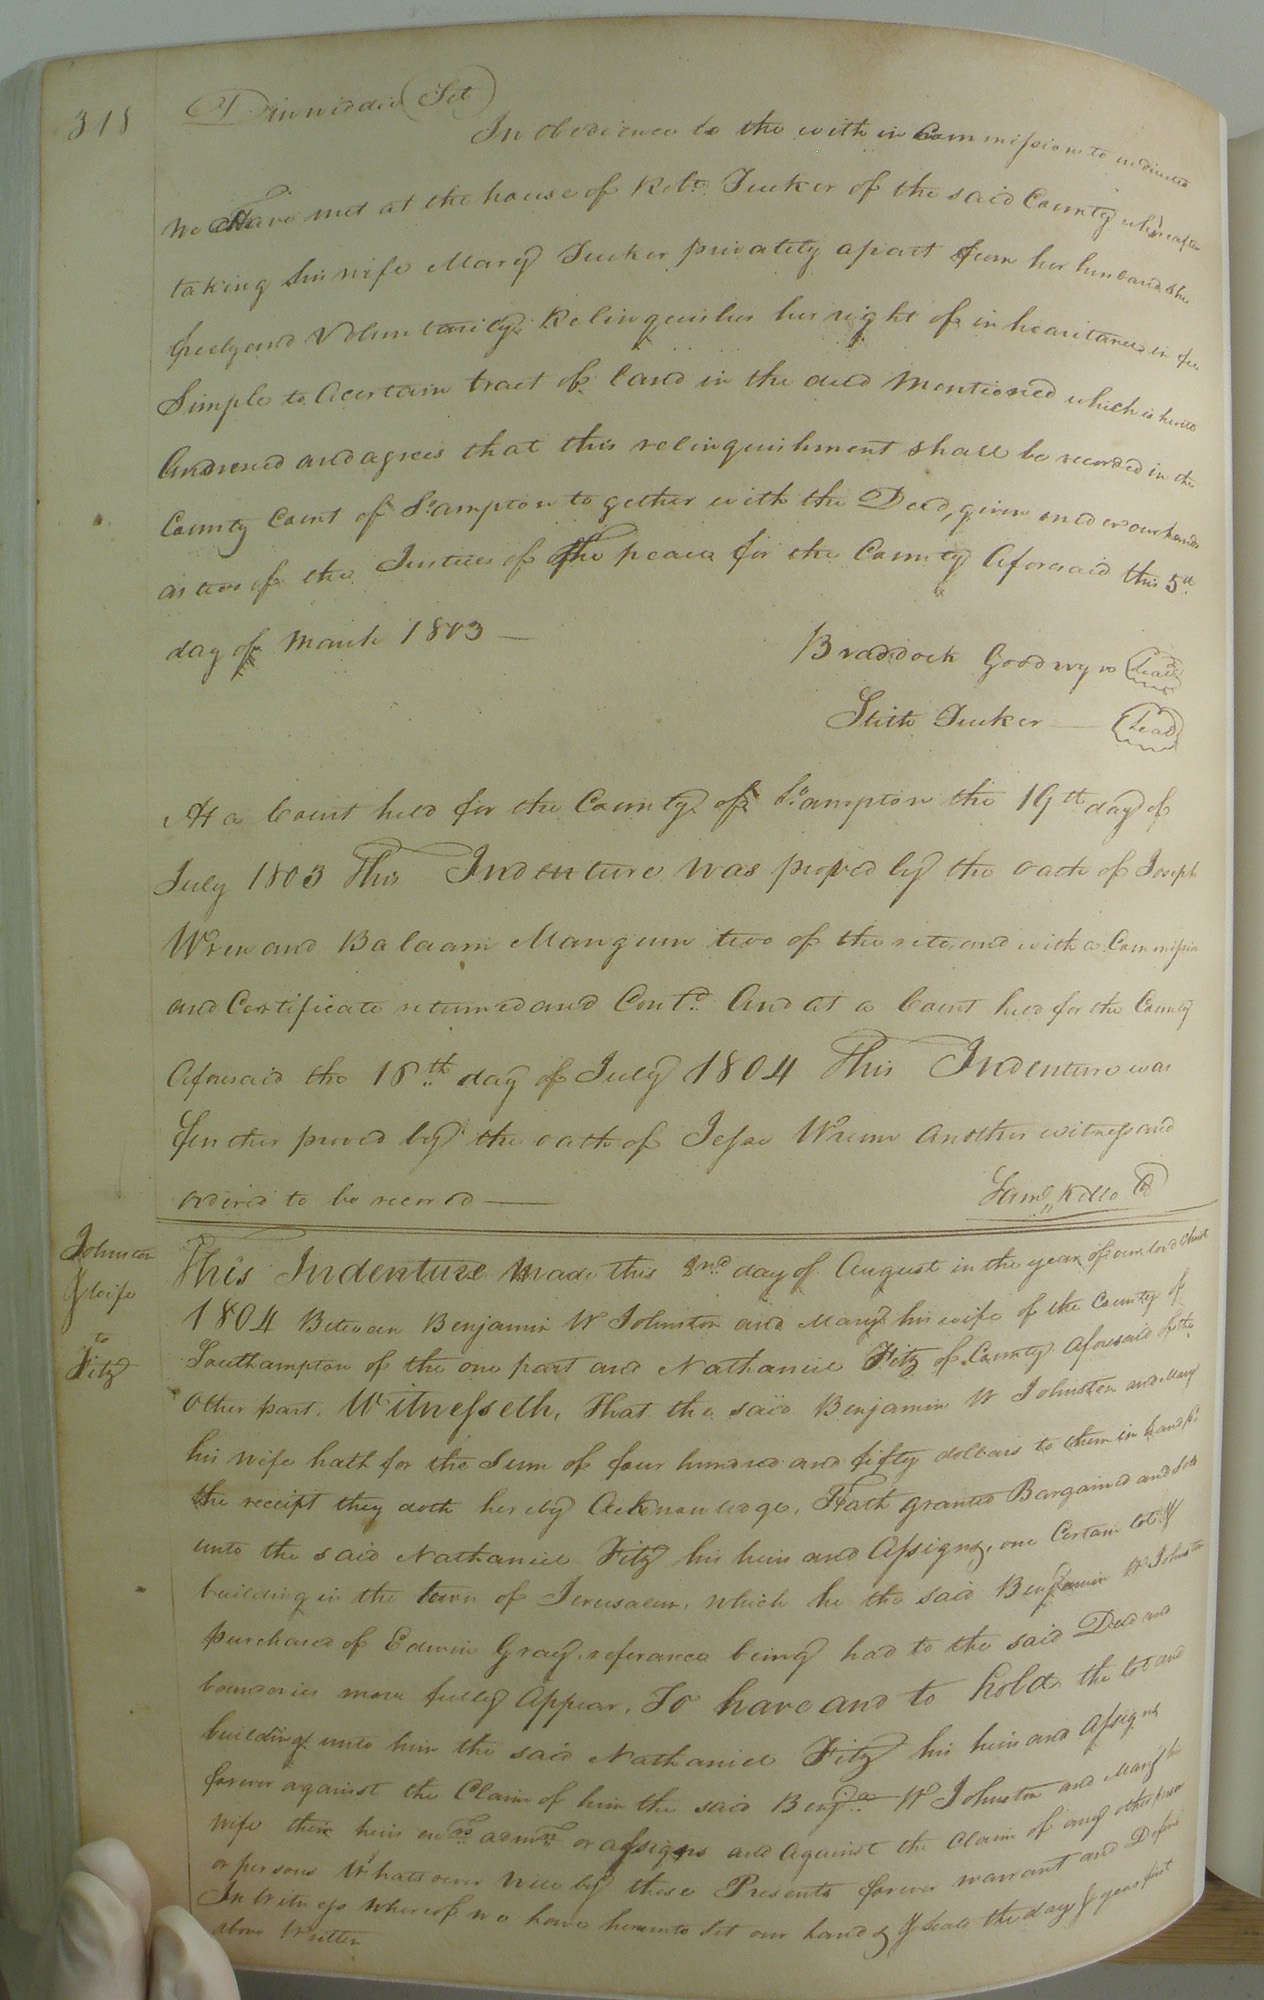 318
Dinwiddie (Sct)
In obedience to the with in Commission to us directed
We Have met at the house of Robt. Tucker of the said County where after
taking his wife Mary Tucker privately apart from her husband she
freely and Voluntarily Relinquishes her right of in hearitance in fee
Simple to a certain tract of land in the deed mentioned which is hereto
Annexed and agrees that this relinquishment shall be recorded in the
County Court of So.ampton to gether with the Deed, given under our hands
as two of the Justices of the peace for the County Aforesaid this 5th
day of March 1803 —
Braddock Goodwyn (Seal)
Stith Tucker — (Seal)
At a Court held for the County of So.ampton the 19th day of
July 1803 This Indenture was proved by the oath of Joseph
Wren and Balaam Mangum two of the wits and with a Commission
and Certificate returned and Contd. And at a Court held for the County
Aforesaid the 16th day of July 1804 This Indenture was
further proved by the oath of Jesse Wrenn another witness and
ordered to be record —
Saml. Kello Cl
Johnston
& wife
to
Fitz
This Indenture Made this 2nd day of August in the year of our lord Christ
1804 Between Benjamin W Johnston and Mary his wife of the County of
Southampton of the one part and Nathaniel Fitz of County Aforesaid of the
Other part. Witnesseth, That the said Benjamin W Johnston and Mary
his wife hath for the Sum of four hundred and fifty dollars to them in hand pd.
the receipt they doth hereby Acknowledge, Hath granted Bargained and Sold
unto the said Nathaniel Fitz his heirs and Assigns, one Certain lot &
building in the town of Jerusalem, which he the said Benjamin W Johnston
purchased of Edwin Gray, referance being had to the said Deed and
boundories more fully Appear, To have and to hold the lot and
building unto him the said Nathaniel Fitz his heirs and Assigns
forever against the Claim of him the said Benja. W Johnston and Mary his
wife their heirs exrs. admrs. or assigns and Against the Claim of any other person
or persons Whatsoever will by these Presents forever warrant and Defend
In Witness whereof we have hereunto Set our hands & Seals the day & year first
above Written